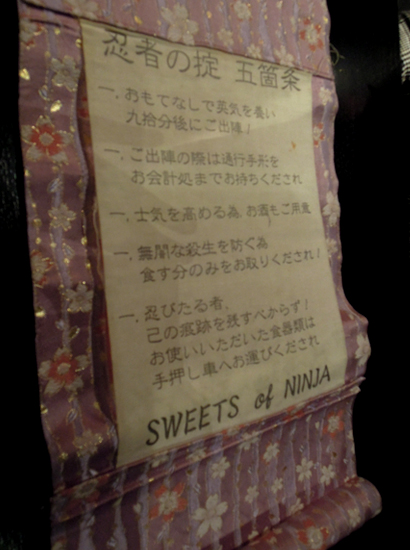 忍者の掟 五箇条
一、おもてなしで英気を養い
九拾分後にご出陣!
一、ご出陣の際は通行手形を
お会計処までお持ちくだされ
一、士気を高める為、お酒もご用意
一、無闇な殺生を防ぐ為
食す分のみをお取りくだされ!
一、忍びたる者、
己の痕跡を残すべからず!
お使いいただいた食器類は
手押し車へお運びくだされ
SWEETS of NINJA